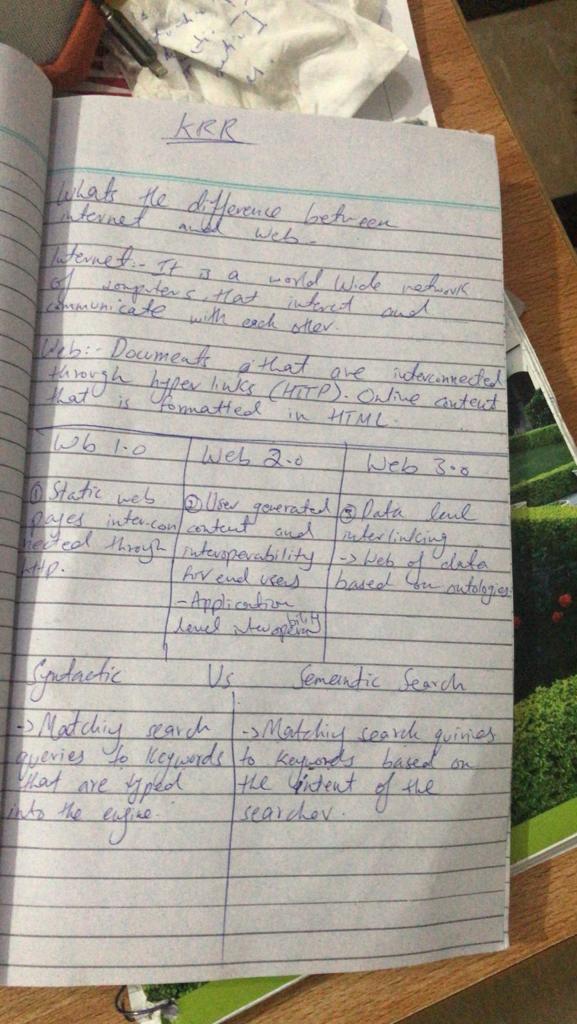 KRR
Whats the difference between
internet and web.
Internet:- It is a world wide network
of computers that interct and
communicate with each other.
Web:- Documents that are interconnected
through hyper links (HTTP). Online content
that is formatted in HTML.
Wb 1.0
① Static web
pages intercon
nected through
http.
Web 2.0
② User generated
content and
interoperability
for end users
- Application
level interoperability
Web 3.0
③ Data level
interlinking
-> Web of data
based on ontologies
Syntactic Vs Semantic Search
-> Matching search
queries to keywords
that are typed
into the engine.
-> Matching search quiries
to keywords based on
the intent of the
searcher.